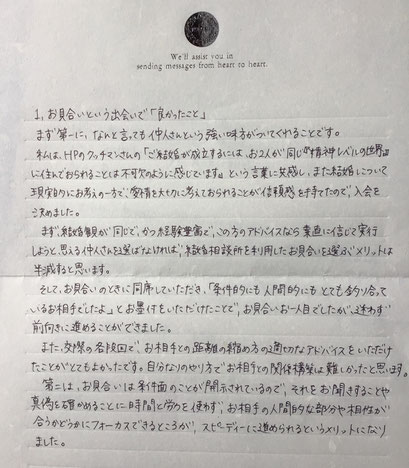 We'll assist you in
sending messages from heart to heart.
1, お見合いという出会いで「良かったこと」
まず第一に、なんと言っても仲人さんという強い味方がついてくれることです。
私は、HPのクッチマンさんの「ご結婚が成立するには、お2人が同じ『精神レベルの世界』
に住んでおられることは不可欠のように感じています』という言葉に共感し、また結婚について
現実的にお考えの一方で、愛情を大切に考えておられることが信頼感を持てたので、入会を
決めました。
まず、結婚観が同じで、かつ経験豊富で、この方のアドバイスなら素直に信じて実行
しようと思える仲人さんを選ばなければ、結婚相談所を利用したお見合いを選ぶメリットは
半減すると思います。
そして、お見合いのときに同席していただき、「条件的にも人間的にもとても釣り合って
いるお相手でしたよ」とお墨付をいただけたことで、お見合いお一人目でしたが、迷わず
前向きに進めることができました。
また、交際の各段回で、お相手との距離の縮め方の適切なアドバイスをいただけ
たことがとてもよかったです。自分なりのやり方でお相手との関係構築は難しかったと思います。
第二は、お見合いは条件面のことが開示されているので、それをお聞きすることや
真偽を確かめることに時間と労力を使わず、お相手の人間的な部分や相性が
合うかどうかにフォーカスできるところが、スピーディーに進められるというメリットになり
ました。